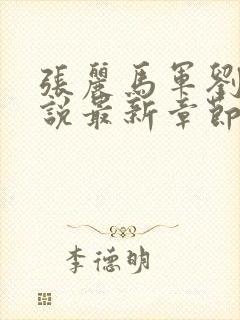 張麗馬軍劉
說最新章節
李德明